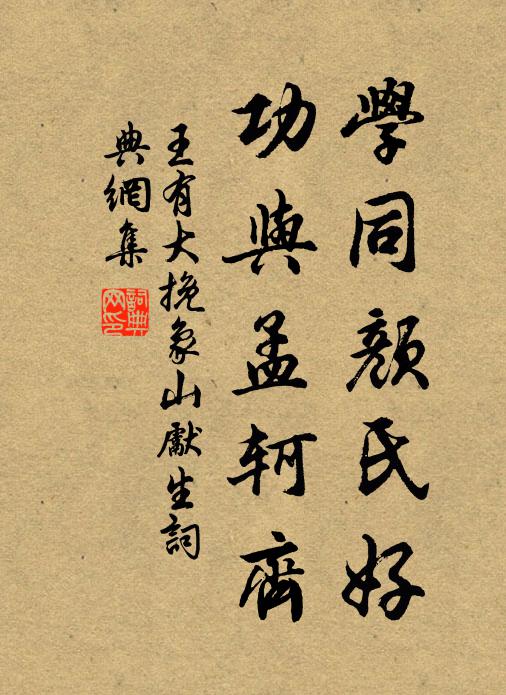 學同顏氏好
功與孟軻齊
王有大挽象山獻生詞
典網集
詞典
网印